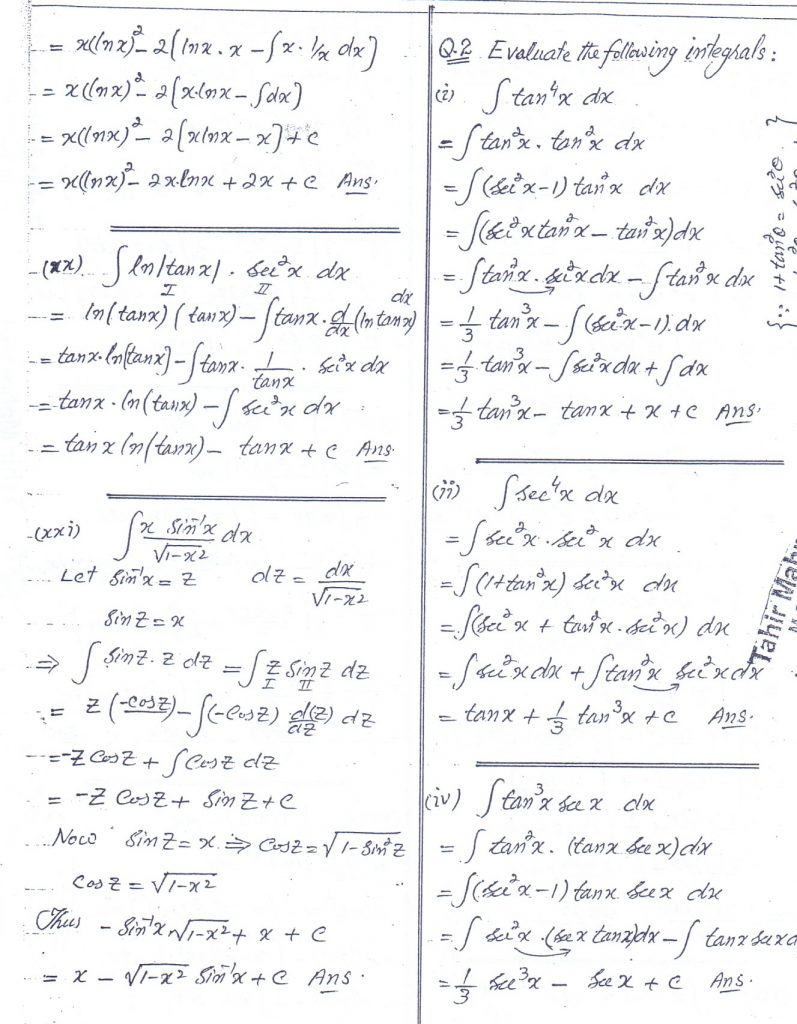 = x(lnx)² - 2[lnx . x - ∫x . 1/x dx]
= x(lnx)² - 2[x.lnx - ∫dx]
= x(lnx)² - 2[xlnx - x] + c
= x(lnx)² - 2x.lnx + 2x + c Ans.
(xx) ∫ ln|tanx| . sec²x dx
I II
= ln(tanx)(tanx) - ∫tanx . d/dx (ln tanx) dx
= tanx.ln(tanx) - ∫tanx . 1/tanx . sec²x dx
= tanx . ln(tanx) - ∫ sec²x dx
= tanx ln(tanx) - tanx + c Ans.
(xxi) ∫ x Sin⁻¹x / √1-x² dx
Let Sin⁻¹x = Z dZ = dx / √1-x²
Sin Z = x
⇒ ∫ SinZ . Z dZ = ∫ Z SinZ dZ
I II
= Z (-CosZ) - ∫(-CosZ) d(Z)/dZ dZ
= -Z CosZ + ∫ CosZ dZ
= -Z CosZ + SinZ + C
Now SinZ = x ⇒ CosZ = √1-Sin²Z
CosZ = √1-x²
Thus - Sin⁻¹x √1-x² + x + C
= x - √1-x² Sin⁻¹x + C Ans.
Q.2 Evaluate the following integrals:
(i) ∫ tan⁴x dx
= ∫ tan²x . tan²x dx
= ∫(sec²x-1) tan²x dx
= ∫(sec²x tan²x - tan²x) dx
= ∫tan²x . sec²x dx - ∫tan²x dx
= 1/3 tan³x - ∫(sec²x-1).dx
= 1/3 tan³x - ∫sec²x dx + ∫dx
= 1/3 tan³x - tanx + x + c Ans.
{∵ 1+tan²θ = sec²θ
(ii) ∫ sec⁴x dx
= ∫ sec²x . sec²x dx
= ∫(1+tan²x) sec²x dx
= ∫(sec²x + tan²x . sec²x) dx
= ∫ sec²x dx + ∫tan²x sec²x dx
= tanx + 1/3 tan³x + c Ans.
Tahir
(iv) ∫ tan³x sec x dx
= ∫ tan²x . (tanx sec x) dx
= ∫(sec²x-1) tanx secx dx
= ∫ sec²x . (sec x tanx)dx - ∫ tanx secx d
= 1/3 sec³x - sec x + c Ans.